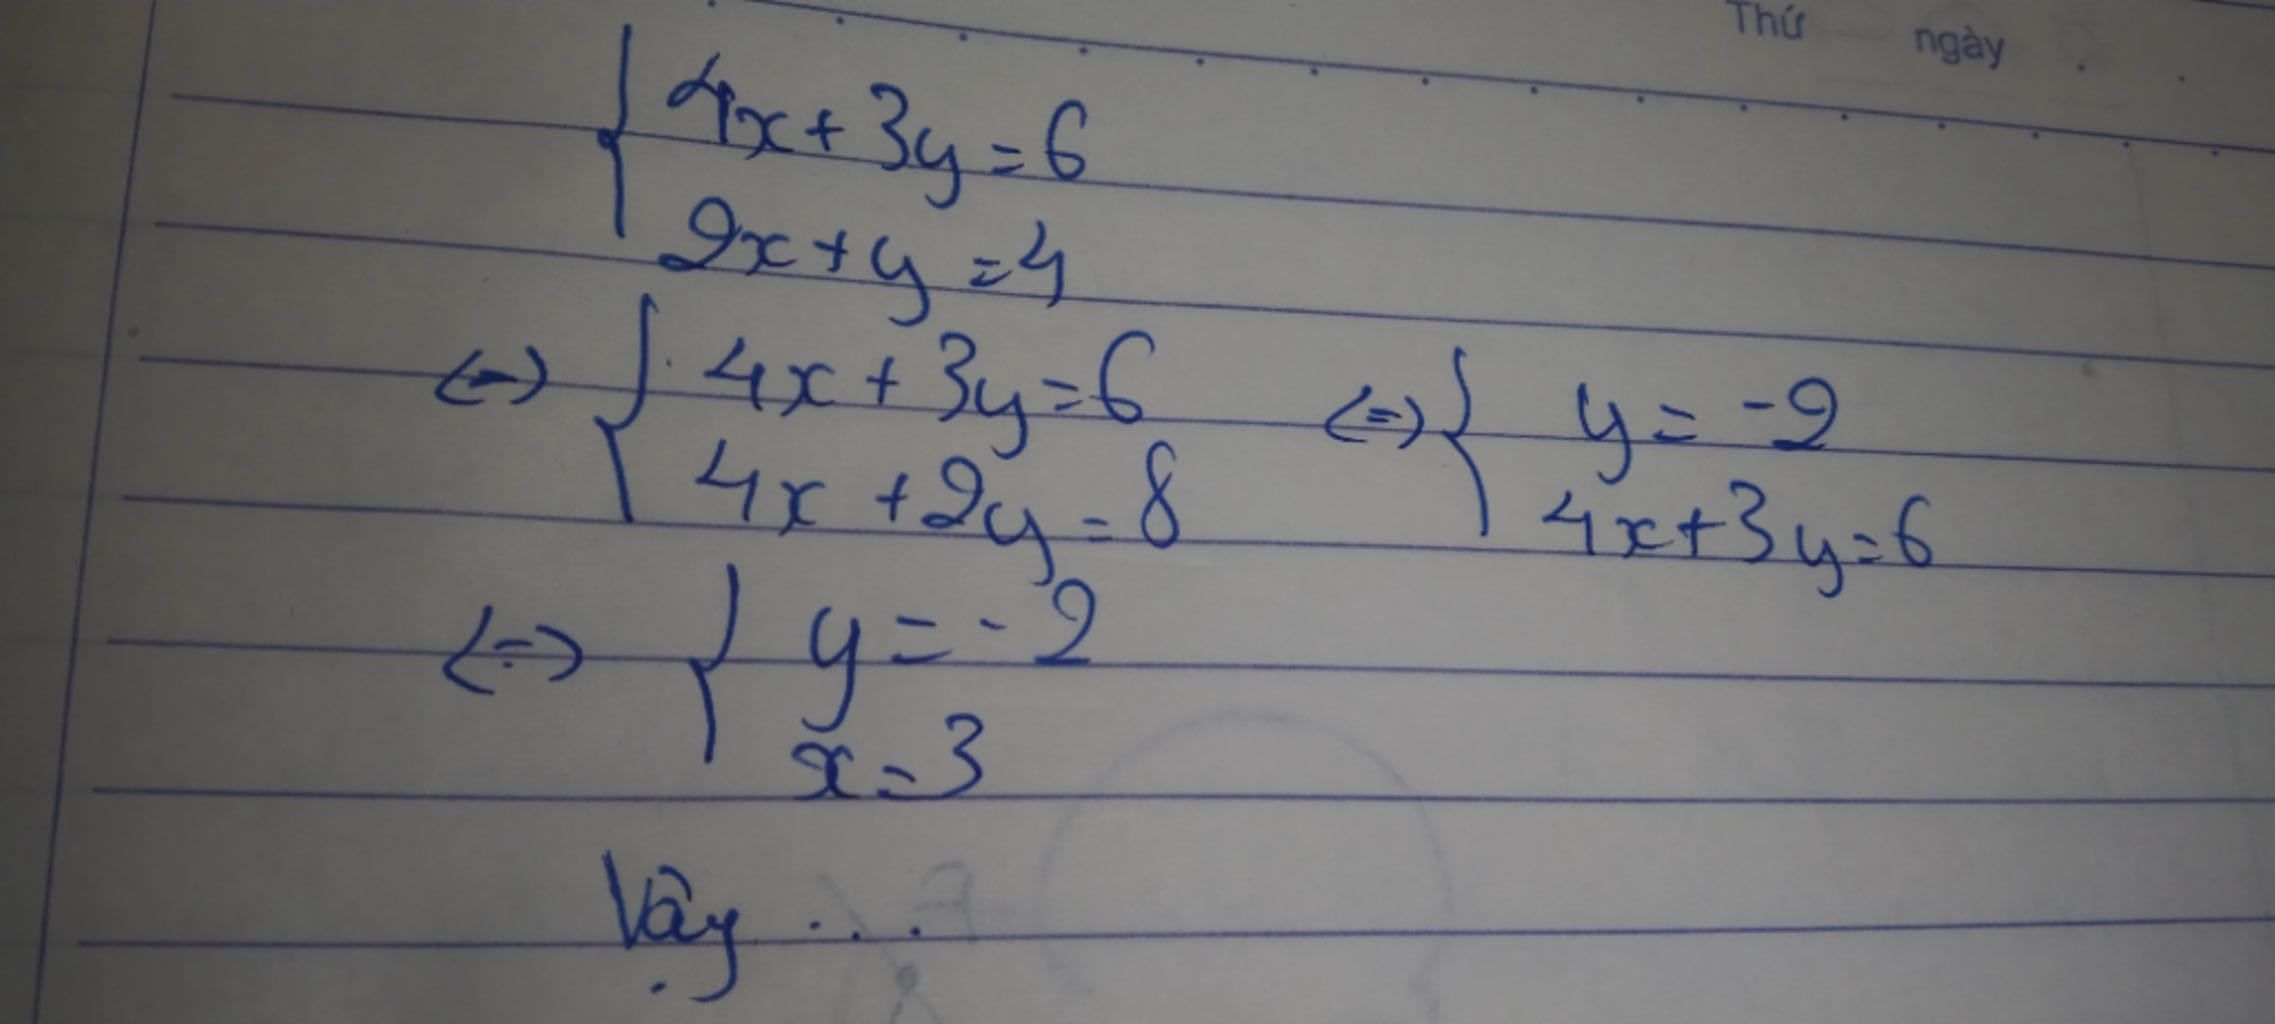 Thứ ngày
4x+3y=6
2x+y=4
<=> 4x+3y=6 <=> y=-2
4x+2y=8 4x+3y=6
<=> y=-2
x=3
Vậy ...